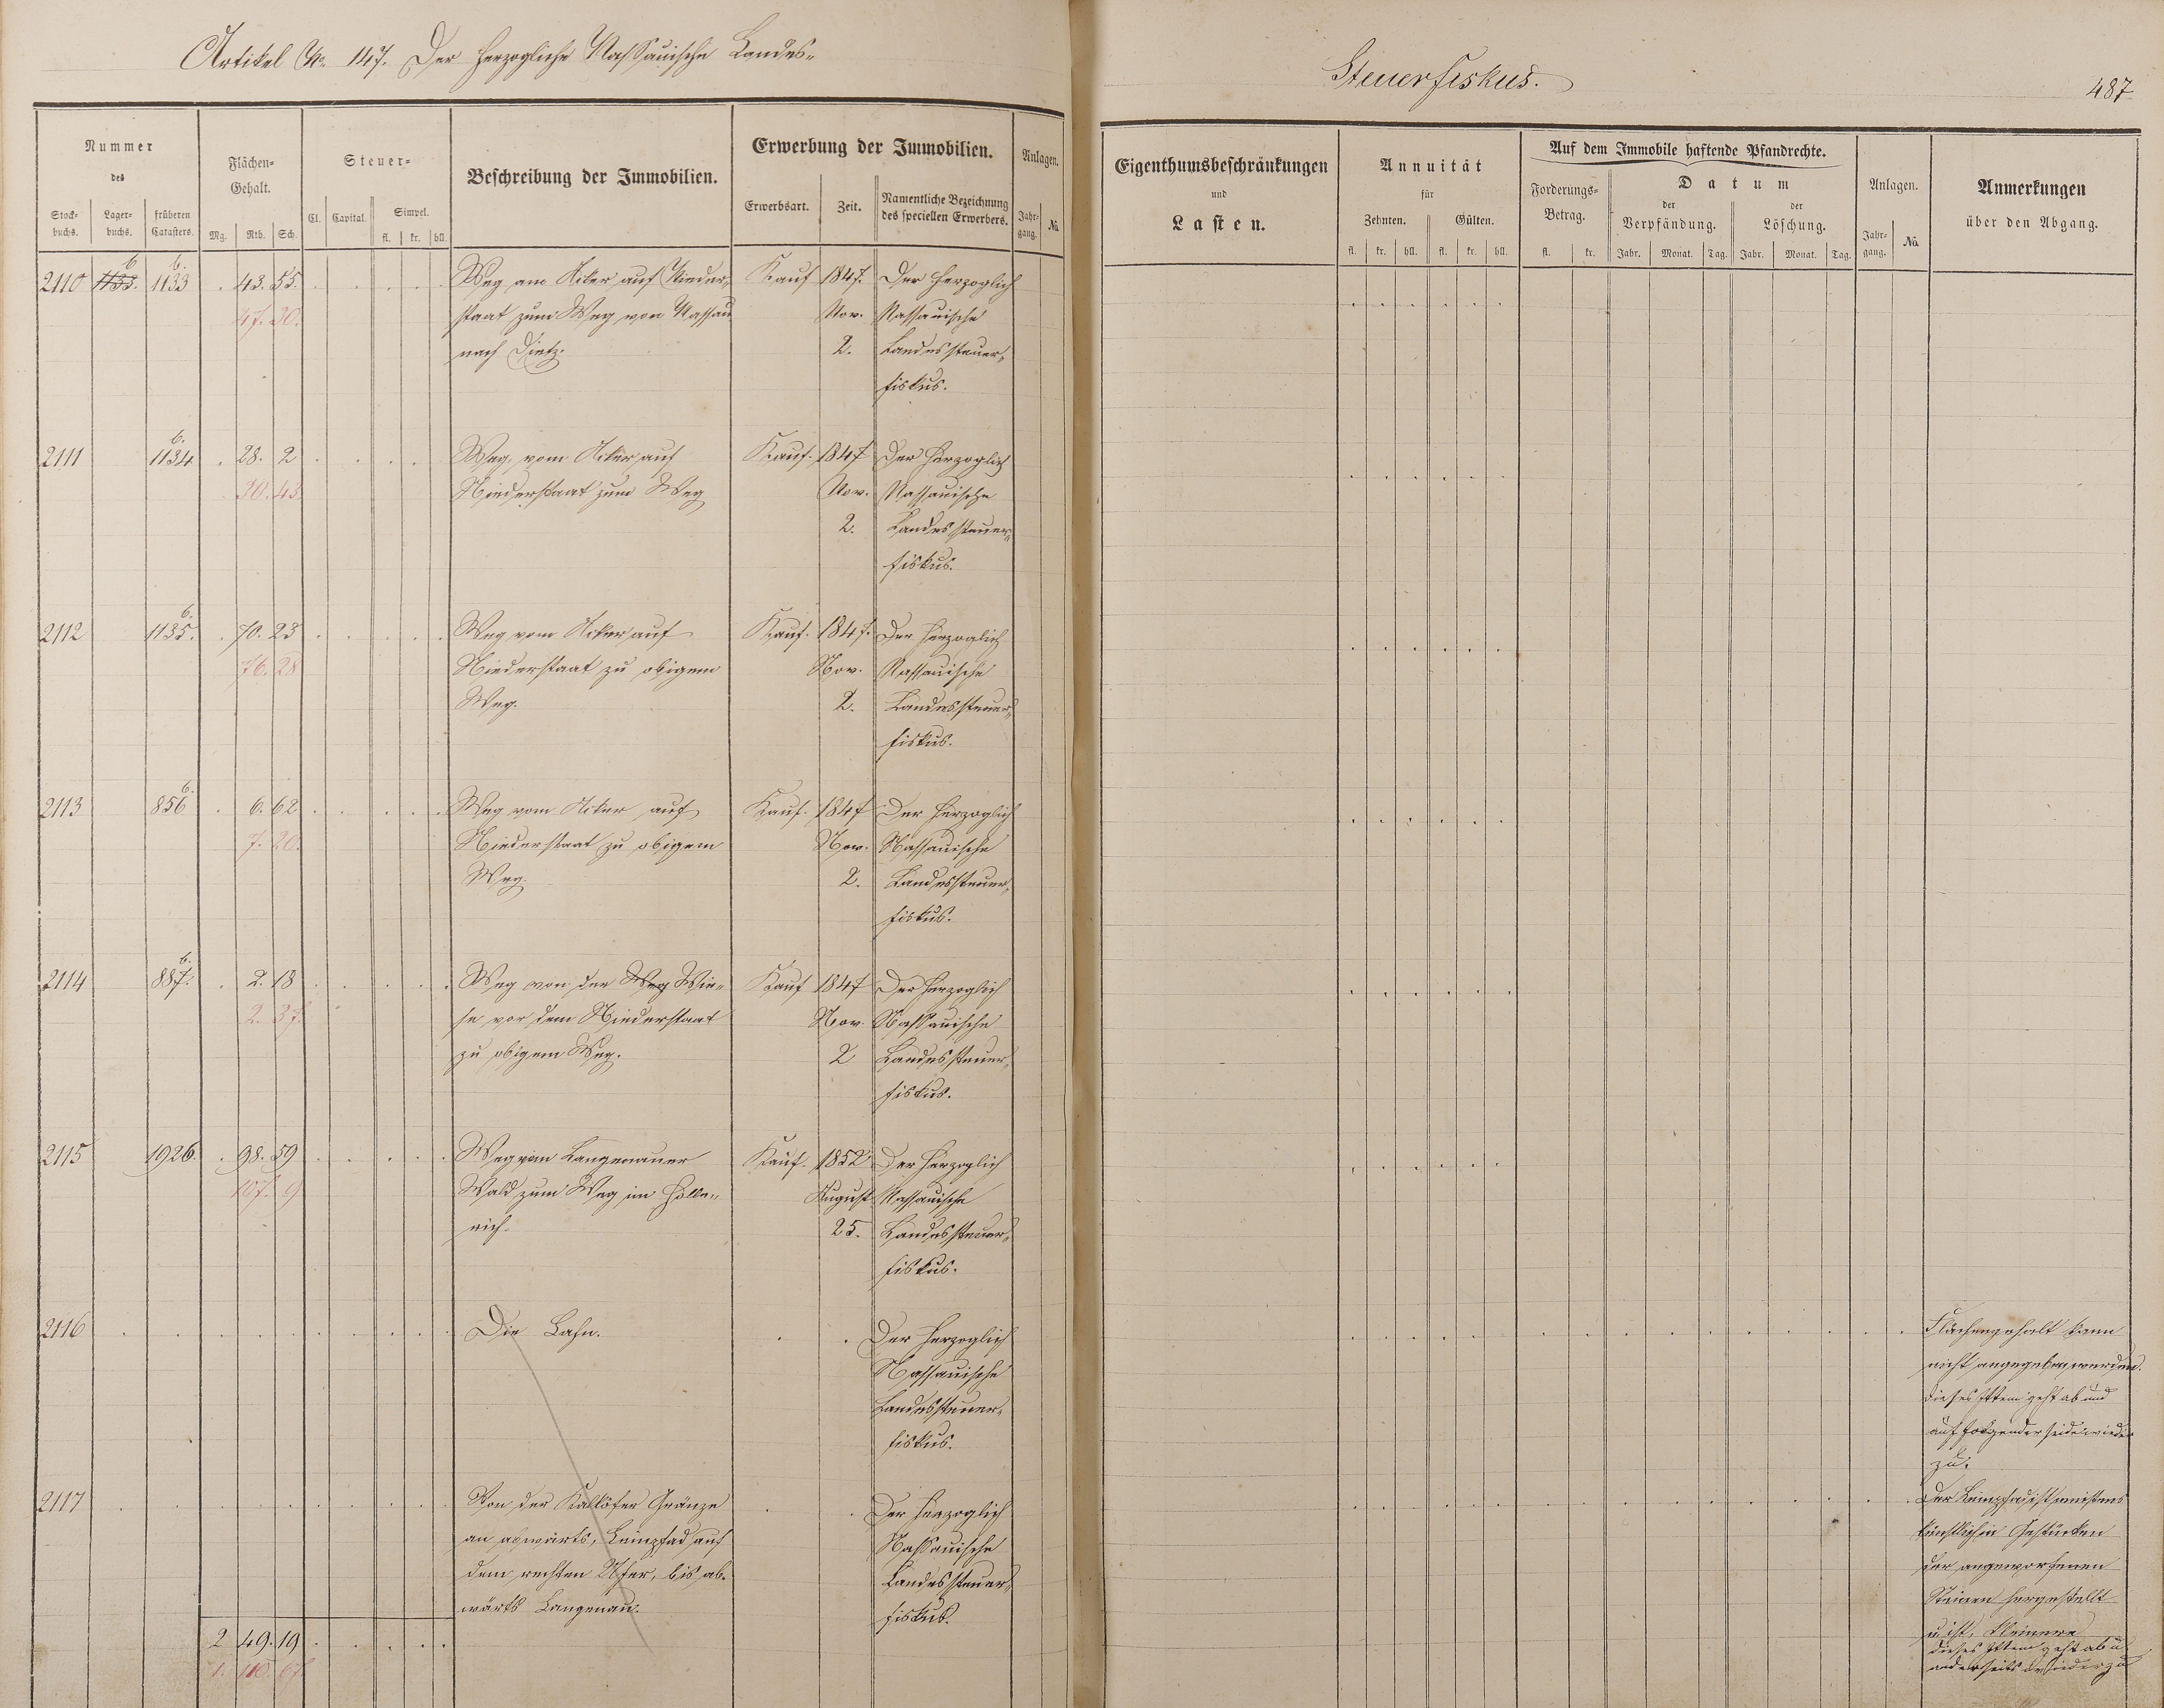 Artikel No. 147. Der Herzogliche Nassauische Landes-
Steuerfiskus.
487
Nummer
des
Stock-
buchs.
Lager-
buchs.
früheren
Catasters.
Flächen-
Gehalt.
Mg. Rth. Sch.
Steuer-
Cl. Capital. Simpel.
fl. kr. hll.
Beschreibung der Immobilien.
Erwerbung der Immobilien.
Erwerbsart. Zeit. Namentliche Bezeichnung
des speciellen Erwerbers.
Anlagen.
Jahr-
gang. No.
Eigenthumsbeschränkungen
und
Lasten.
Annuität
für
Zehnten. Gülten.
fl. kr. hll. fl. kr. hll.
Auf dem Immobile haftende Pfandrechte.
Forderungs-
Betrag.
fl. kr.
Datum
der
Verpfändung.
der
Löschung.
Jahr. Monat. Tag. Jahr. Monat. Tag.
Anlagen.
Jahr-
gang. No.
Anmerkungen
über den Abgang.
2110 1133. b 1133 b. 43. 55. Weg am Acker auf Nieder- Kauf 1847. Der Herzoglich
47. 30. staat zum Weg von Nassau Nov. Nassauische
nach Dietz. 2. Landessteuer-
fiskus.
2111 1134 b. 28. 2 Weg, vom Acker auf Kauf. 1847 Der Herzoglich
30. 43. Niederstaat zum Weg Nov. Nassauische
2. Landessteuer-
fiskus.
2112 1135. b. 70. 23 Weg vom Acker auf Kauf. 1847. Der Herzoglich
76. 28 Niederstaat zu obigem Nov. Nassauische
Weg. 2. Landessteuer-
fiskus.
2113 856 b. 6. 62 Weg vom Acker auf Kauf. 1847 Der Herzoglich
7. 20. Niederstaat zu obigem Nov. Nassauische
Weg. 2. Landessteuer-
fiskus.
2114 887. b. 2. 18 Weg von der Weg Wie- Kauf 1847 Der Herzoglich
2. 37. se vor dem Niederstaat Nov. Nassauische
zu obigem Weg. 2 Landessteuer-
fiskus.
2115 1926. 98. 59 Weg vom Langenauer Kauf. 1852 Der Herzoglich
107. 9 Wald zum Weg im Holle- August Nassauische
rich. 25. Landessteuer-
fiskus.
2116 Die Lahn. Der Herzoglich Flächengehalt kann
Nassauische nicht angegeben werden.
Landessteuer- dieses Item geht ab und
fiskus. auf folgender Seite wieder
zu.
2117 Von der Kalköfer Gränze Der Herzoglich Der Leinpfad ist meistens
an abwärts, Leinpfad auf Nassauische
dem rechten Ufer, bis ab- Landessteuer- der angeworfenen
wärts Langenau. fiskus. Steinen hergestellt
2 49. 19 dieses Item geht ab u.
1. 110. 67 anderseits wieder zu